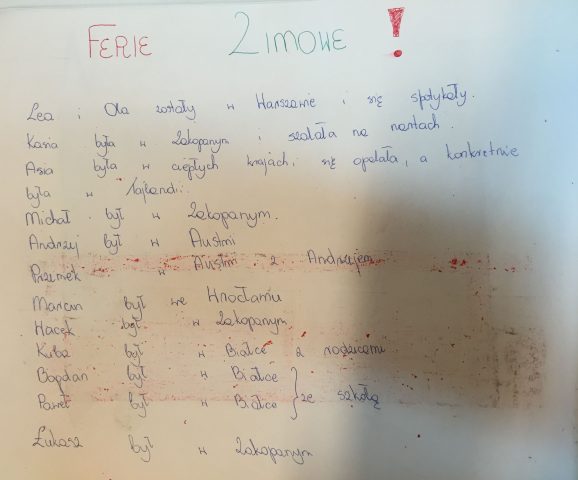 FERIE ZIMOWE !
Lea i Ola zostały w Warszawie i się spotykały.
Kasia była w Zakopanym i szalała na nartach.
Asia była w ciepłych krajach, się opalała, a konkretnie
była w Tajlandi.
Michał był w Zakopanym.
Andrzej był w Austrii
Przemek w Austrii z Andrzejem
Marcin był we Wrocławiu
Wacek był w Zakopanym.
Kuba był w Białce z rodzicami
Bogdan był w Białce
Paweł był w Białce } ze szkołą
Łukasz był w Zakopanym